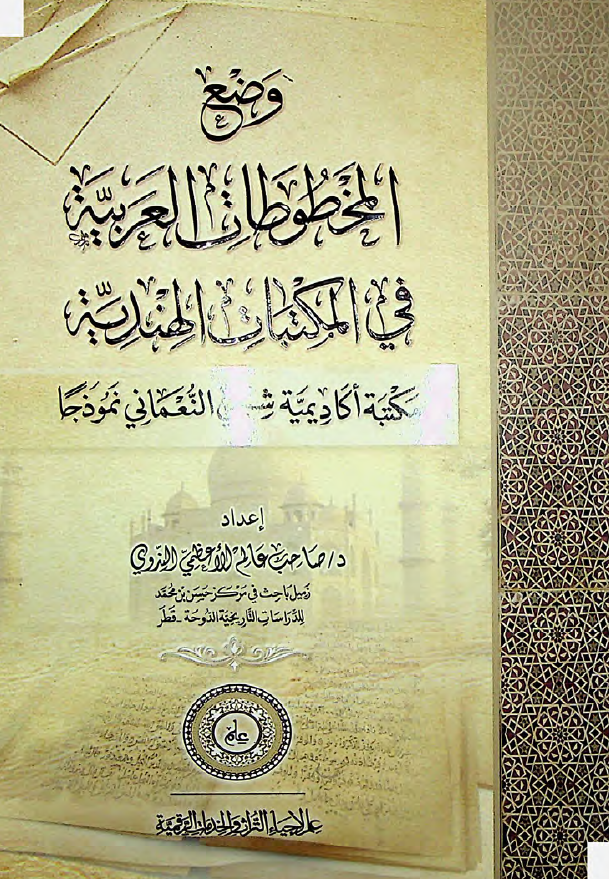 وَضْع
المَخْطُوطَاتِ العَرَبيَّة
في المَكْتَبَاتِ الهِنْدِيَّة
مَكْتَبَة أَكَادِيمِيَّة النُّعْمَانِي نَمُوذَجًا
إعداد
د/صَاحِب عَالم الأَعْظَمِيّ النَّدْوِي
زَمِيل بَاحِث فِي مَرْكَز حَسَن بْن مُحَمَّد
لِلدِّرَاسَاتِ التَّارِيخِيَّة الدَّوحَة - قَطَر
علم
علم لإحياء التراث والخدمات الرقمية